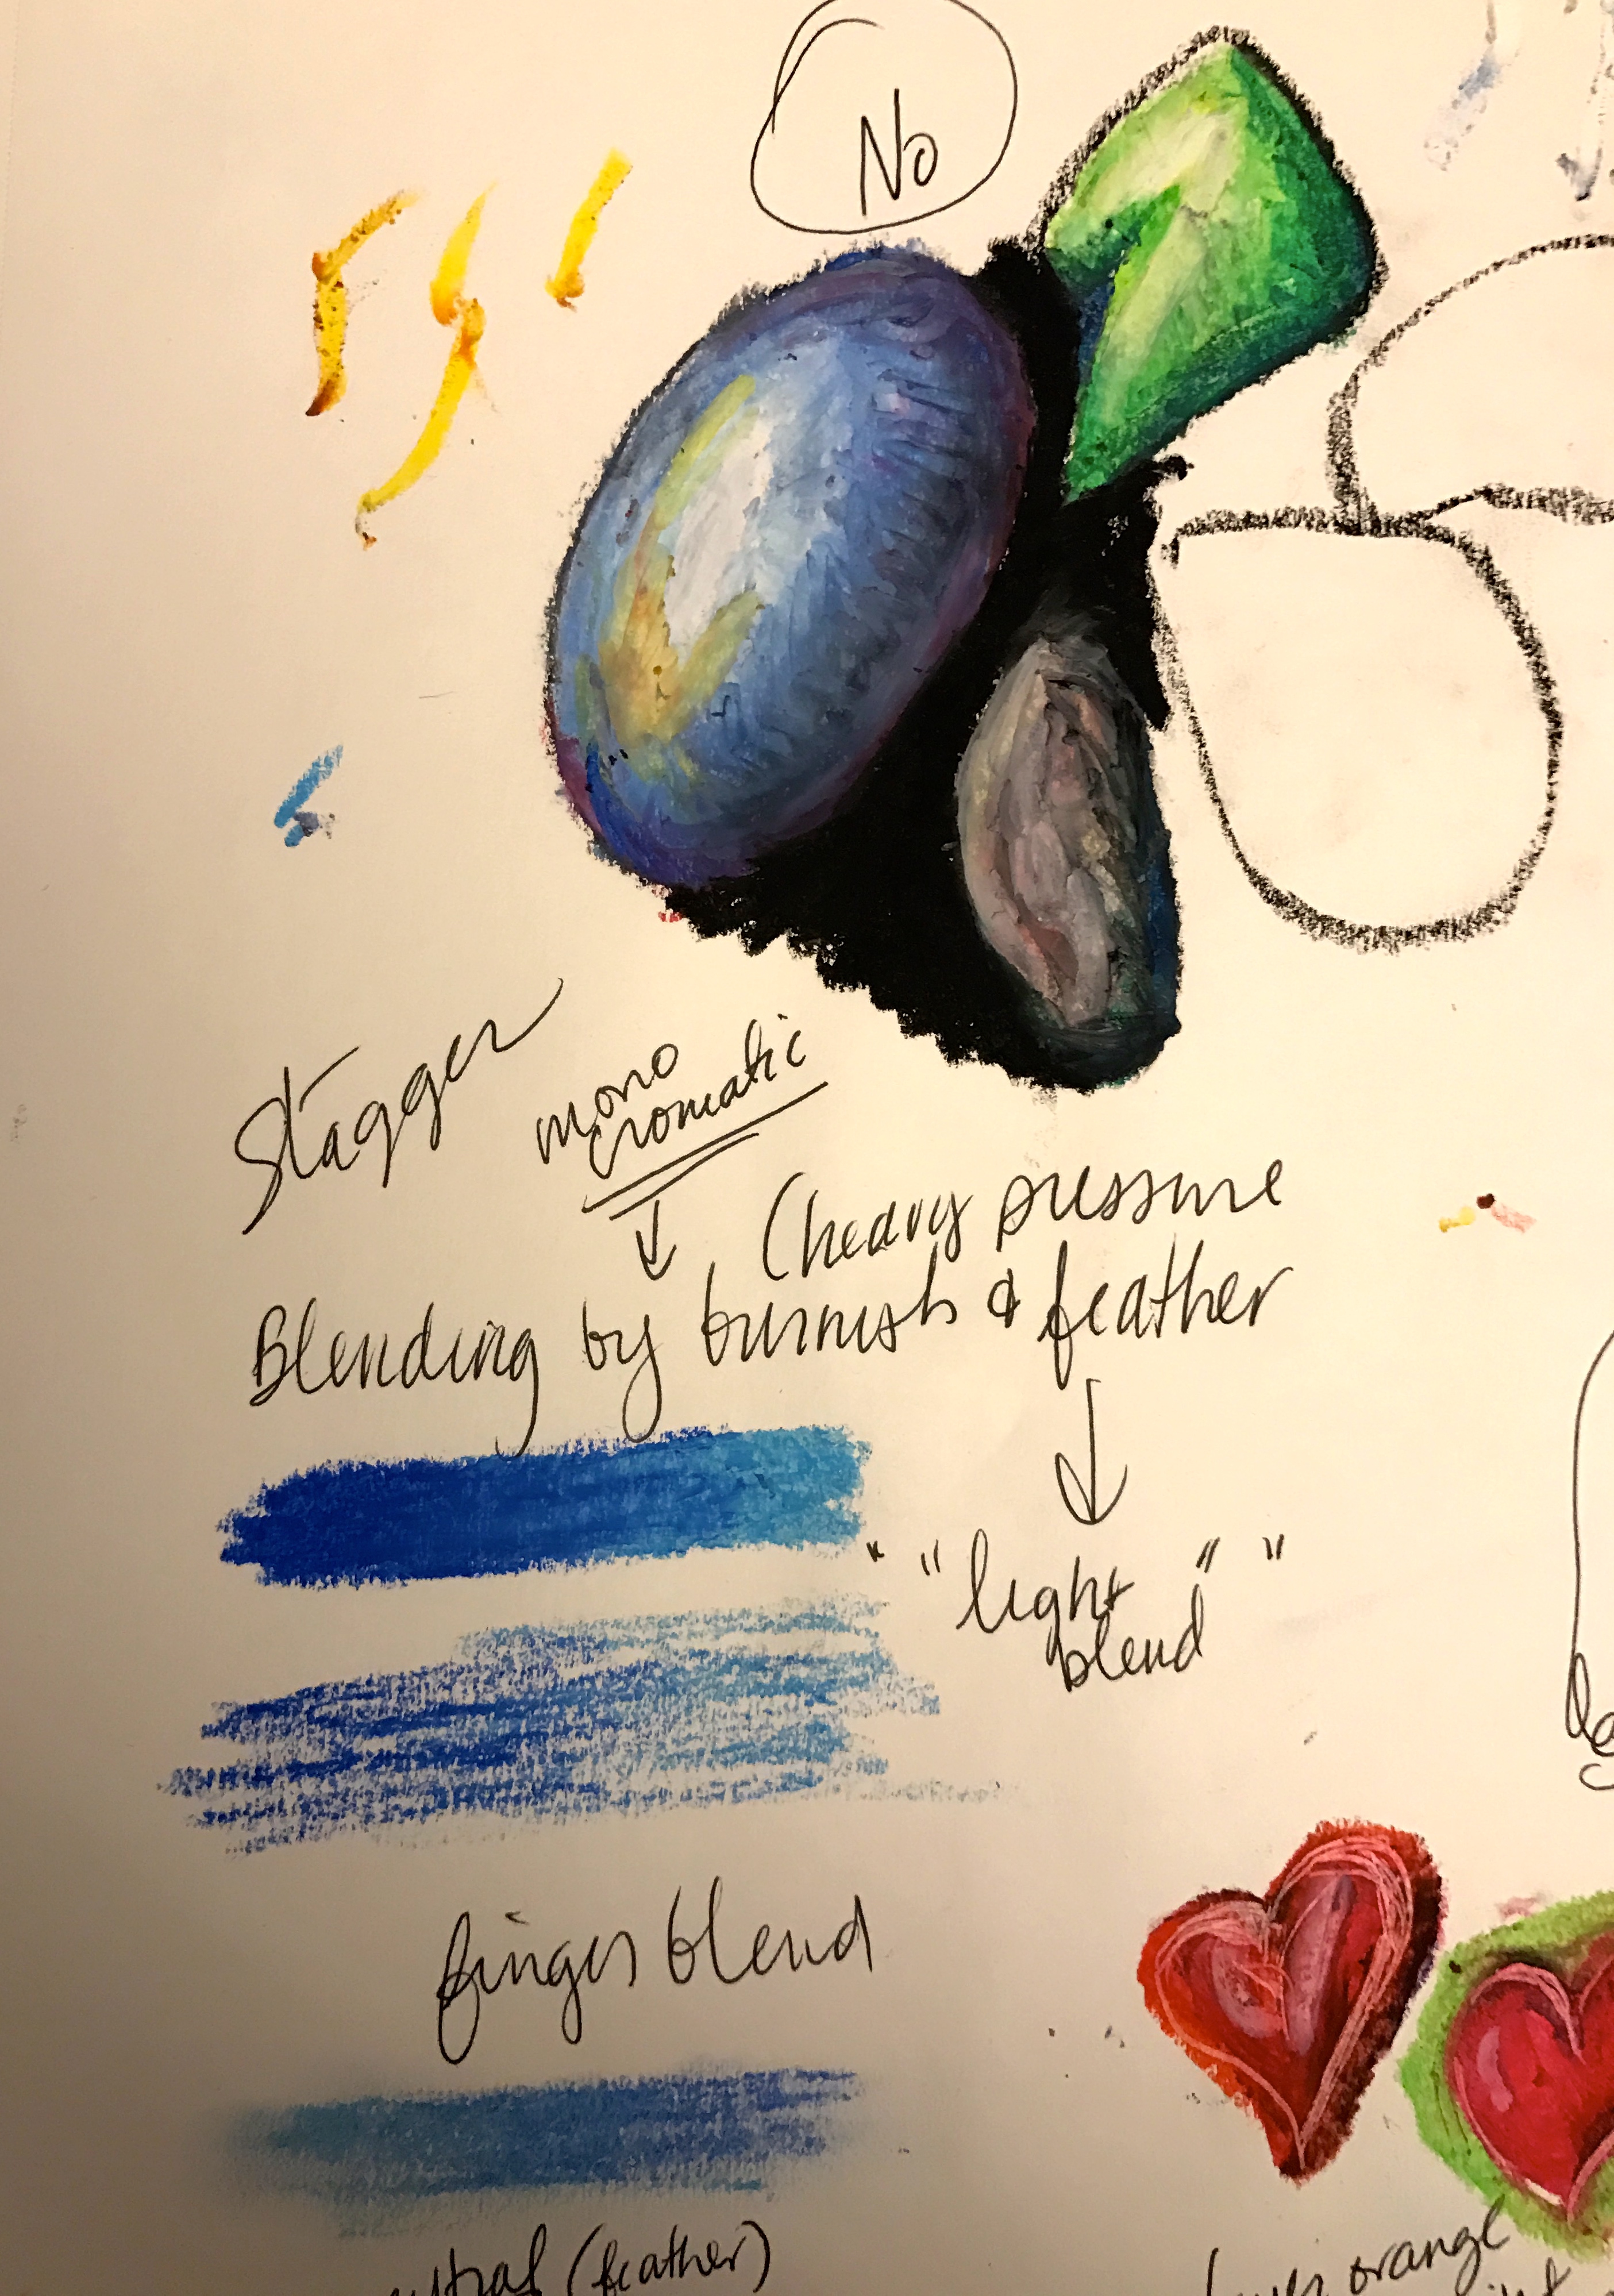 No
Stagger
mono
cromatic
(heavy pressure
Blending by burnish & feather
" "light " "
blend
finger blend
(feather)
orange